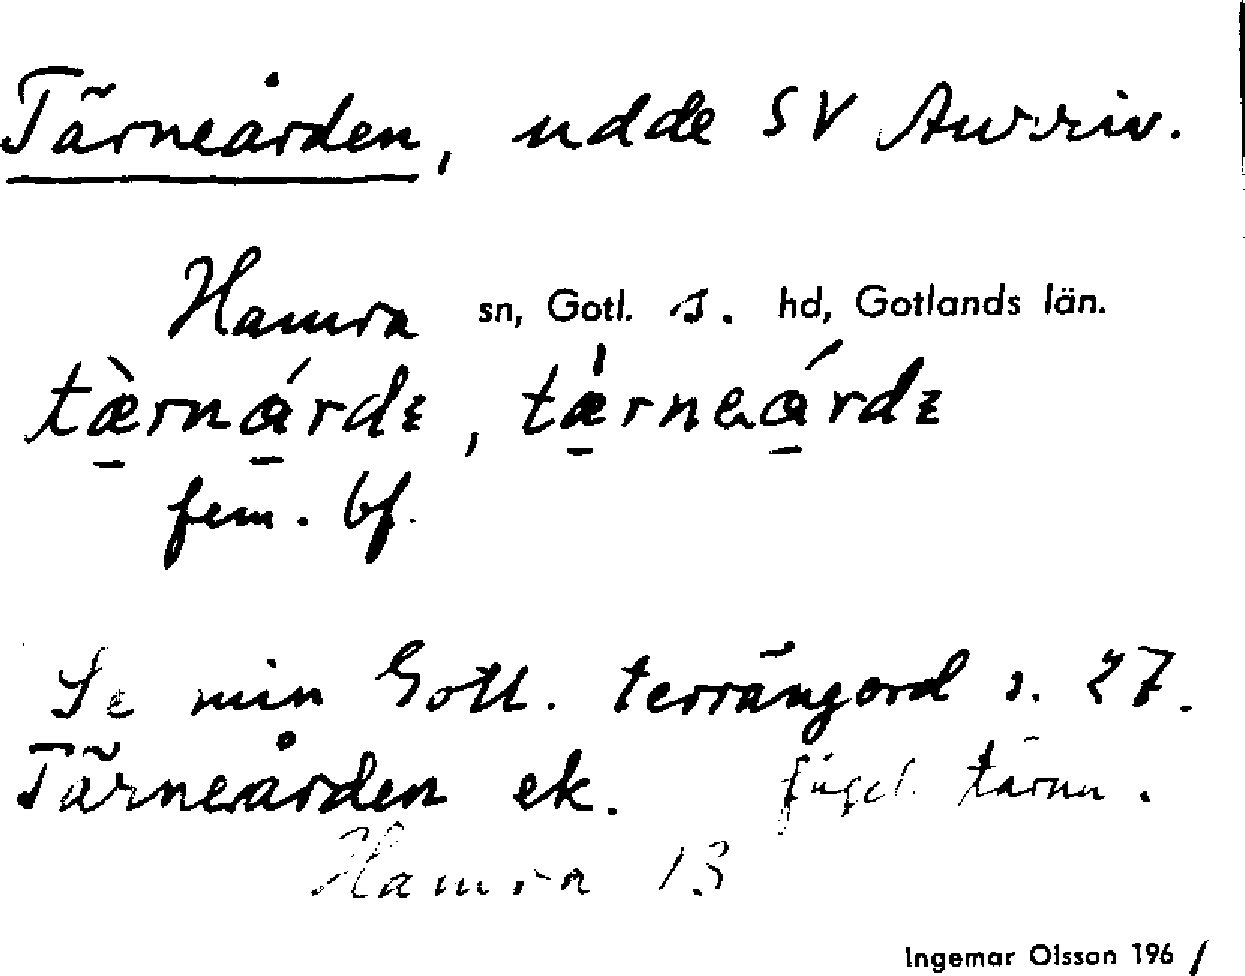 Tärneården, udde SV Aursviv.
Hamra sn, Gotl. s. hd, Gotlands län.
tæ̀rnárdɛ, tæ̍rneárdɛ
fem. bf.
Se min Gotl. terrängord s. 27.
Tärneården ek. fågel. tärna.
Hamra 13
Ingemar Olsson 1961